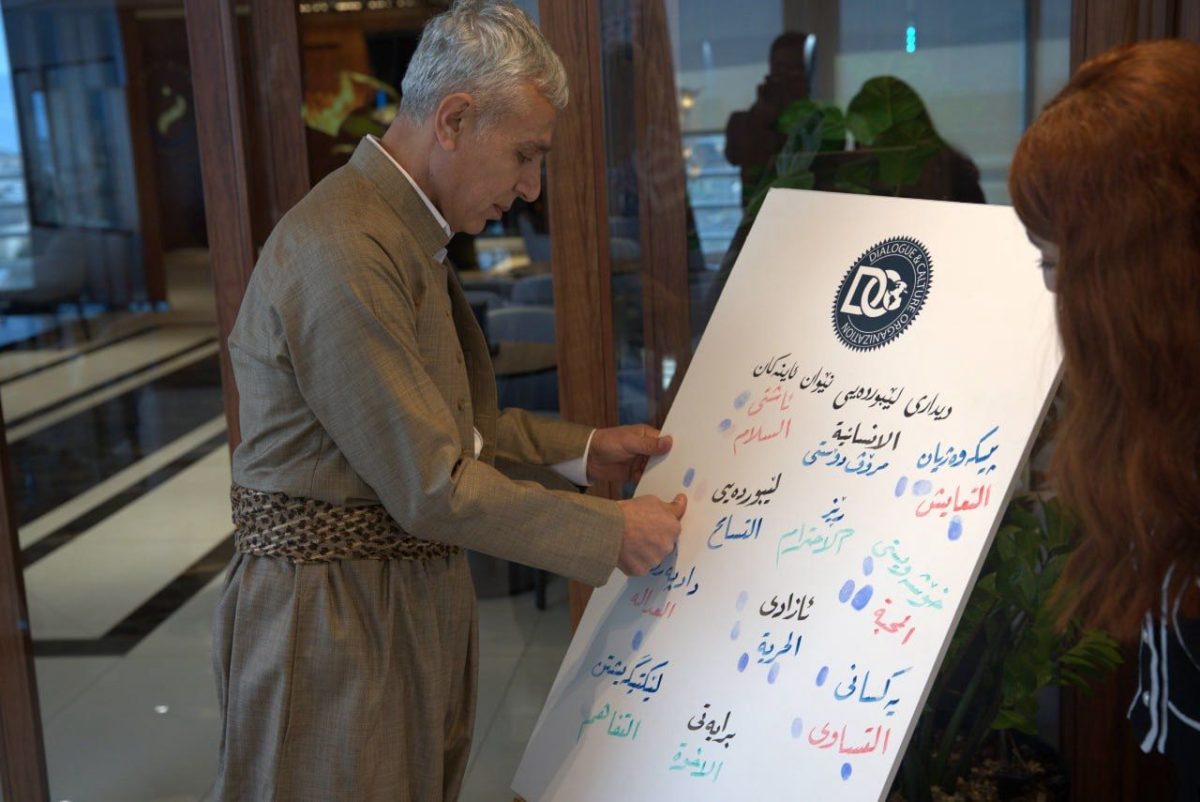 DIALOGUE & CULTURE ORGANIZATION
DC
دیداری لێبوردەیی نێوان ئاینەکان
ئاشتی
السلام
الانسانية
مرۆڤ دۆستی
پێکەوەژیان
التعايش
لێبوردەیی
التسامح
ڕێز
الاحترام
خۆشەویستی
المحبة
العدالە
ئازادی
الحرية
یەکسانی
التساوی
لێکتێگەیشتن
التفاهم
برایەتی
الاخوة